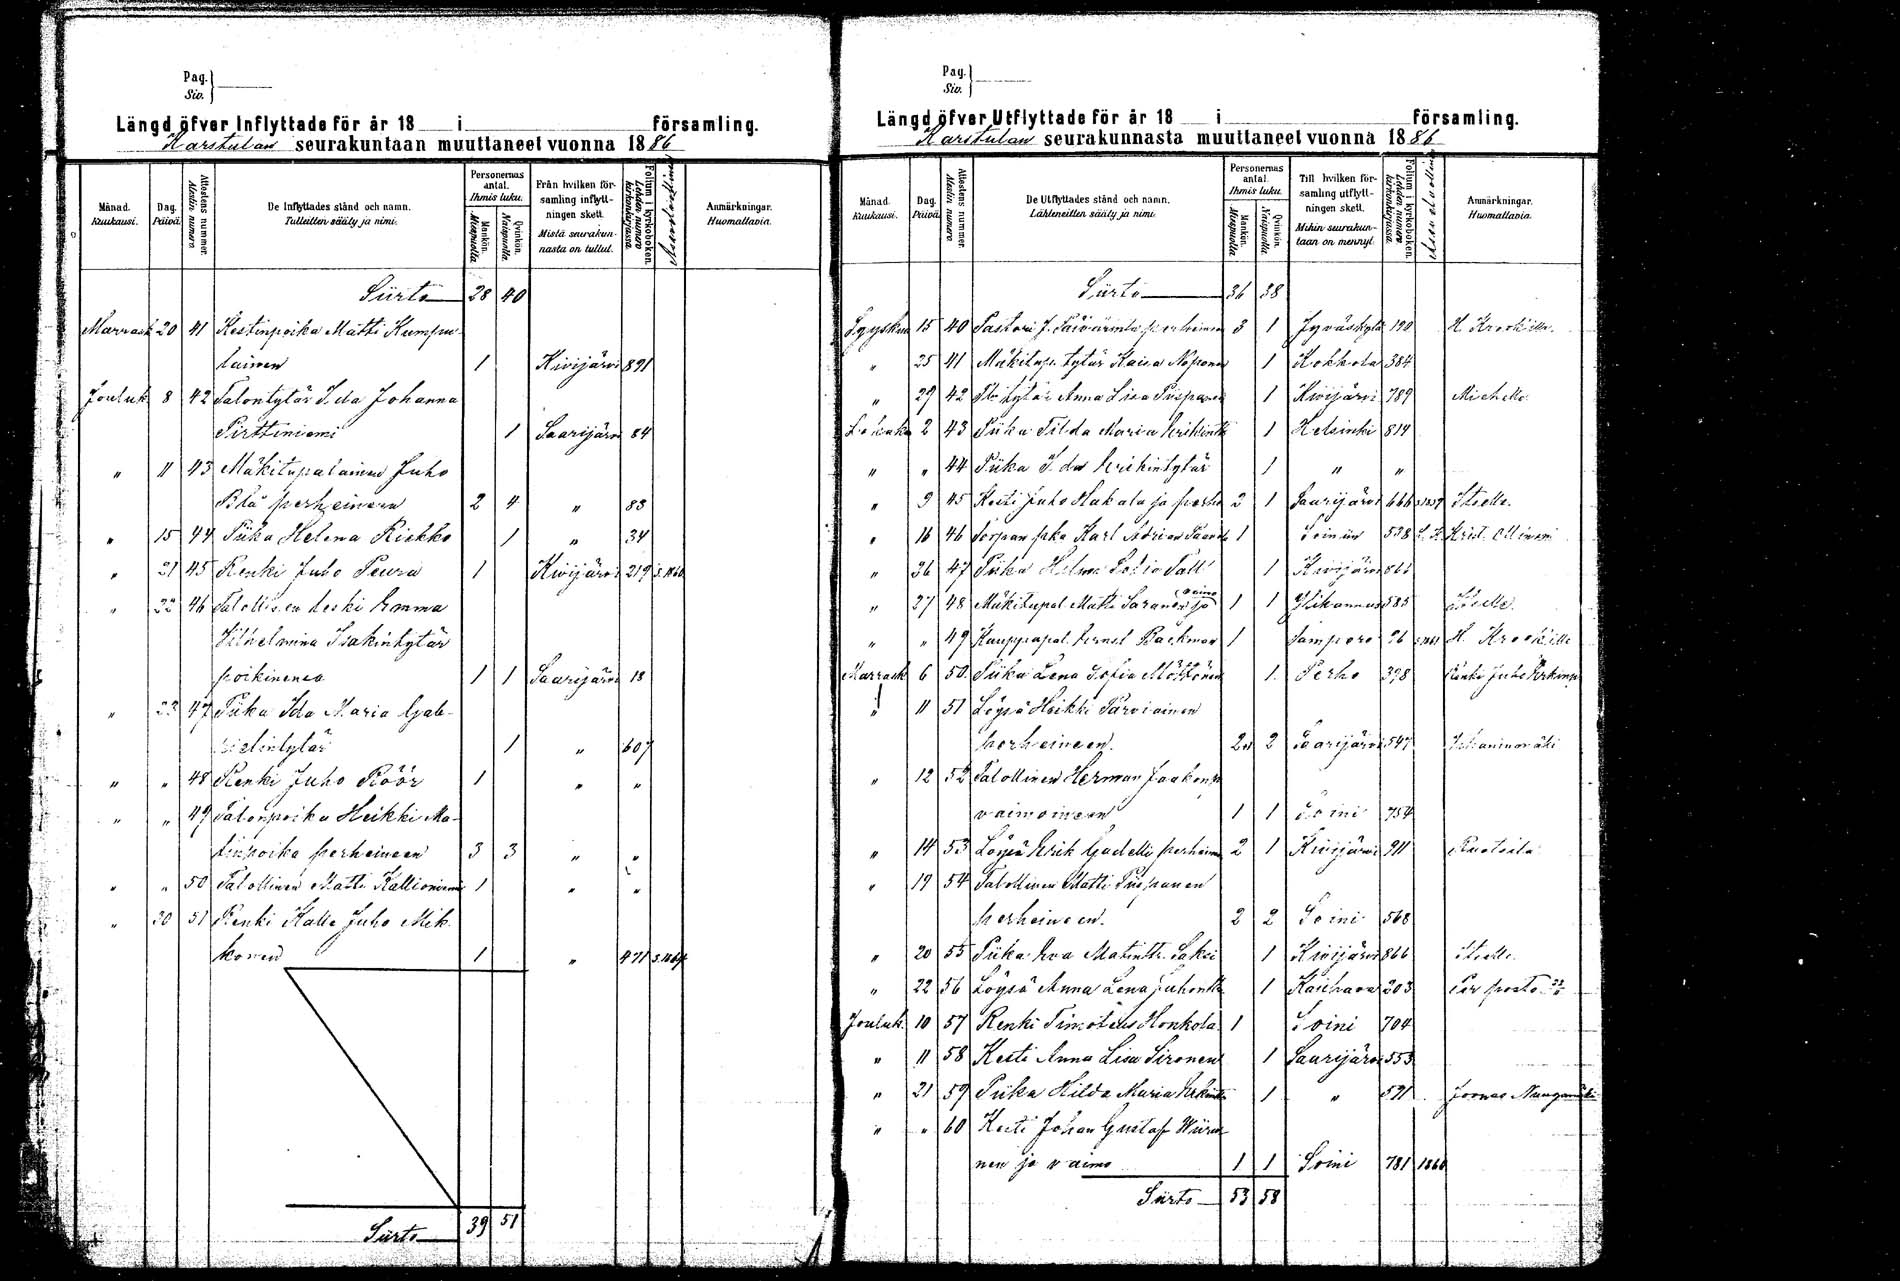 Pag.
Siv.
Längd öfver Inflyttade för år 18 i församling.
Karstulan seurakuntaan muuttaneet vuonna 1886
Månad. Kuukausi. Dag. Päivä. Attestens nummer. Alestin numero De Inflyttades stånd och namn. Tulleitten sääty ja nimi. Personernas antal. Ihmis luku. Mankön. Miespuolia Qvinkön. Naispuolia Från hvilken församling inflyttningen skett. Mistä seurakunnasta on tullut. Folium i kyrkoboken. Lehden numero kirkonkirjassa Anmärkningar. Huomattavia.
Siirto 28 40
Marrask 20 41 Kestinpoika Matti Kumpu-
lainen 1 Kivijärvi 891
Jouluk 8 42 Talontytär Ida Johanna
Pirttiniemi 1 Saarijärvi 84
" 11 43 Mäkitupalainen Juho
Blå perheineen 2 4 " 83
" 15 44 Piika Helena Riekko 1 " 34
" 21 45 Renki Juho Peura 1 Kivijärvi 219 S. 1860
" 22 46 Talollisen leski Emma
Vilhelmina Isakintytär
poikinensa 1 1 Saarijärvi 18
" 23 47 Piika Ida Maria Gab-
rielintytär 1 " 607
" " 48 Renki Juho Röör 1 " "
" " 49 Talonpoika Heikki Ma-
tinpoika perheineen 3 3 " "
" " 50 Talollinen Matti Kallioniemi 1 " "
" 30 51 Renki Kalle Juho Mik-
konen 1 " 471 S. 1864
Siirto 39 51
Pag.
Siv.
Längd öfver Utflyttade för år 18 i församling.
Karstulan seurakunnasta muuttaneet vuonna 1886
Månad. Kuukausi. Dag. Päivä. Attestens nummer. Alestin numero De Utflyttades stånd och namn. Lähteneitten sääty ja nimi. Personernas antal. Ihmis luku. Mankön. Miespuolia Qvinkön. Naispuolia Till hvilken församling utflyttningen skett. Mihin seurakuntaan on mennyt. Folium i kyrkoboken. Lehden numero kirkonkirjassa Anmärkningar. Huomattavia.
Siirto 36 38
Syyskuu 15 40 Pastori J. Päivärinta perheineen 3 1 Jyväskylä 190 H. Krookille.
" 25 41 Mäkitup. tytär Kaisa Noponen 1 Kokkola 384
" 29 42 Tl. tytär Anna Lisa Piispanen 1 Kivijärvi 789 Miehelle.
Lokakuu 2 43 Piika Tilda Maria Erikintr 1 Helsinki 814
" " 44 Piika Ida Erikintytär 1 " "
" 9 45 Kesti Juho Hakala ja perhe 2 1 Saarijärvi 666 Itselle.
" 16 46 Torpan pka Karl Adrian 1 Soiniin 538
" 26 47 Piika Helma Sofia Fält 1 Kivijärvi 866
" 27 48 Mäkitupal. Matti Saranen ja vaimo 1 1 Ylikannus 585 Itselle.
" " 49 Kauppapal. Ernst Backman 1 Tampere 26 H. Krookille
Marrask 6 50 Piika Lena Sofia Möttönen 1 Perho 398 Renki Juho
" 11 51 Löysä Heikki Parviainen
perheineen. 2 2 Saarijärvi 547
" 12 52 Talollinen Herman Jaakonp
vaimoineen 1 1 Soini 754
" 14 53 Löysä Erik Gadelli perheineen 2 1 Kivijärvi 911
" 19 54 Talollinen Matti Piispanen
perheineen. 2 2 Soini 568
" 20 55 Piika Eva Matintr. Saksi 1 Kivijärvi 866 Itselle.
" 22 56 Löysä Anna Lena Juhontr 1 Kauhava 203 Per posto
Jouluk. 10 57 Renki Timoteus Honkola 1 Soini 704
" 11 58 Kesti Anna Lisa Sironen 1 Saarijärvi 553
" 21 59 Piika Hilda Maria 1 " 591 Joonas
" " 60 Kesti Johan Gustaf Wiiri-
nen ja vaimo 1 1 Soini 781 1860
Siirto 53 58